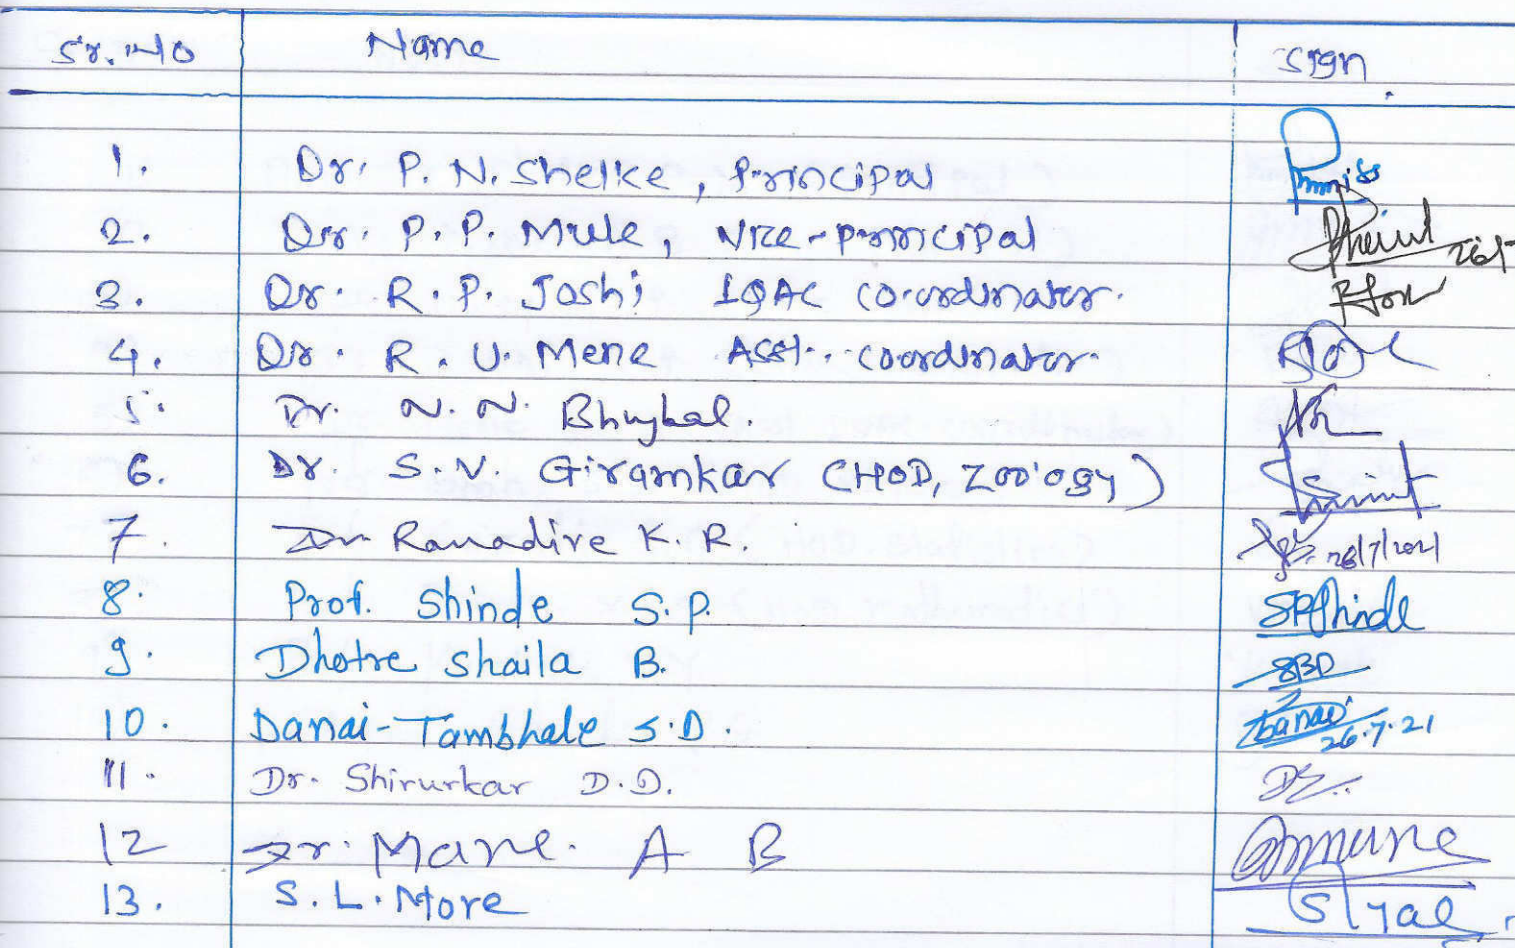 Sr. No Name Sign
1. Dr. P. N. Shelke, Principal
2. Dr. P. P. Mule, Vice-principal
3. Dr. R. P. Joshi IQAC co-ordinator.
4. Dr. R. U. Mene Asst. coordinator.
5. Dr. N. N. Bhujbal.
6. Dr. S. V. Giramkar (HOD, Zoology)
7. Dr. Ranadive K. R. 26/7/2021
8. Prof. Shinde S. P. SPShinde
9. Dhotre Shaila B. SBD
10. Danai-Tambhale S.D. Danai 26.7.21
11. Dr. Shirurkar D. D.
12 Dr. Mane. A B
13. S. L. More